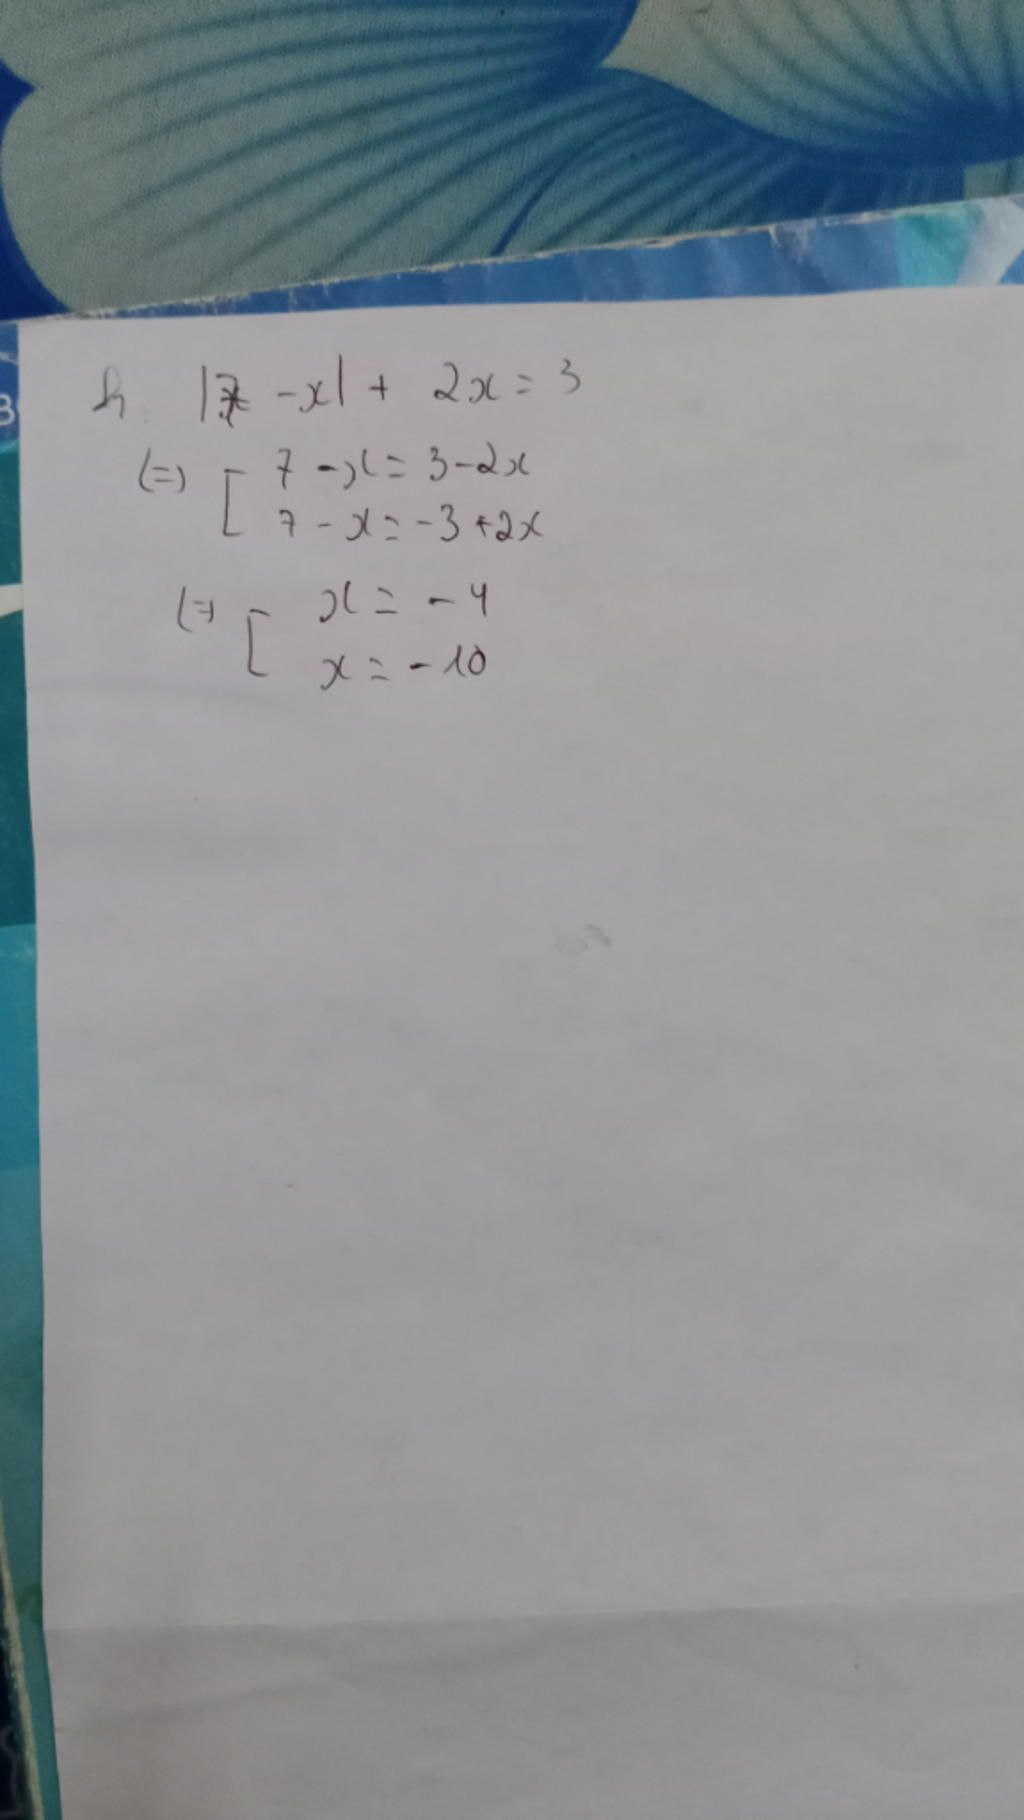 h, |7 - x| + 2x = 3
(=) [ 7 - x = 3 - 2x
7 - x = -3 + 2x
(=) [ x = - 4
x = - 10